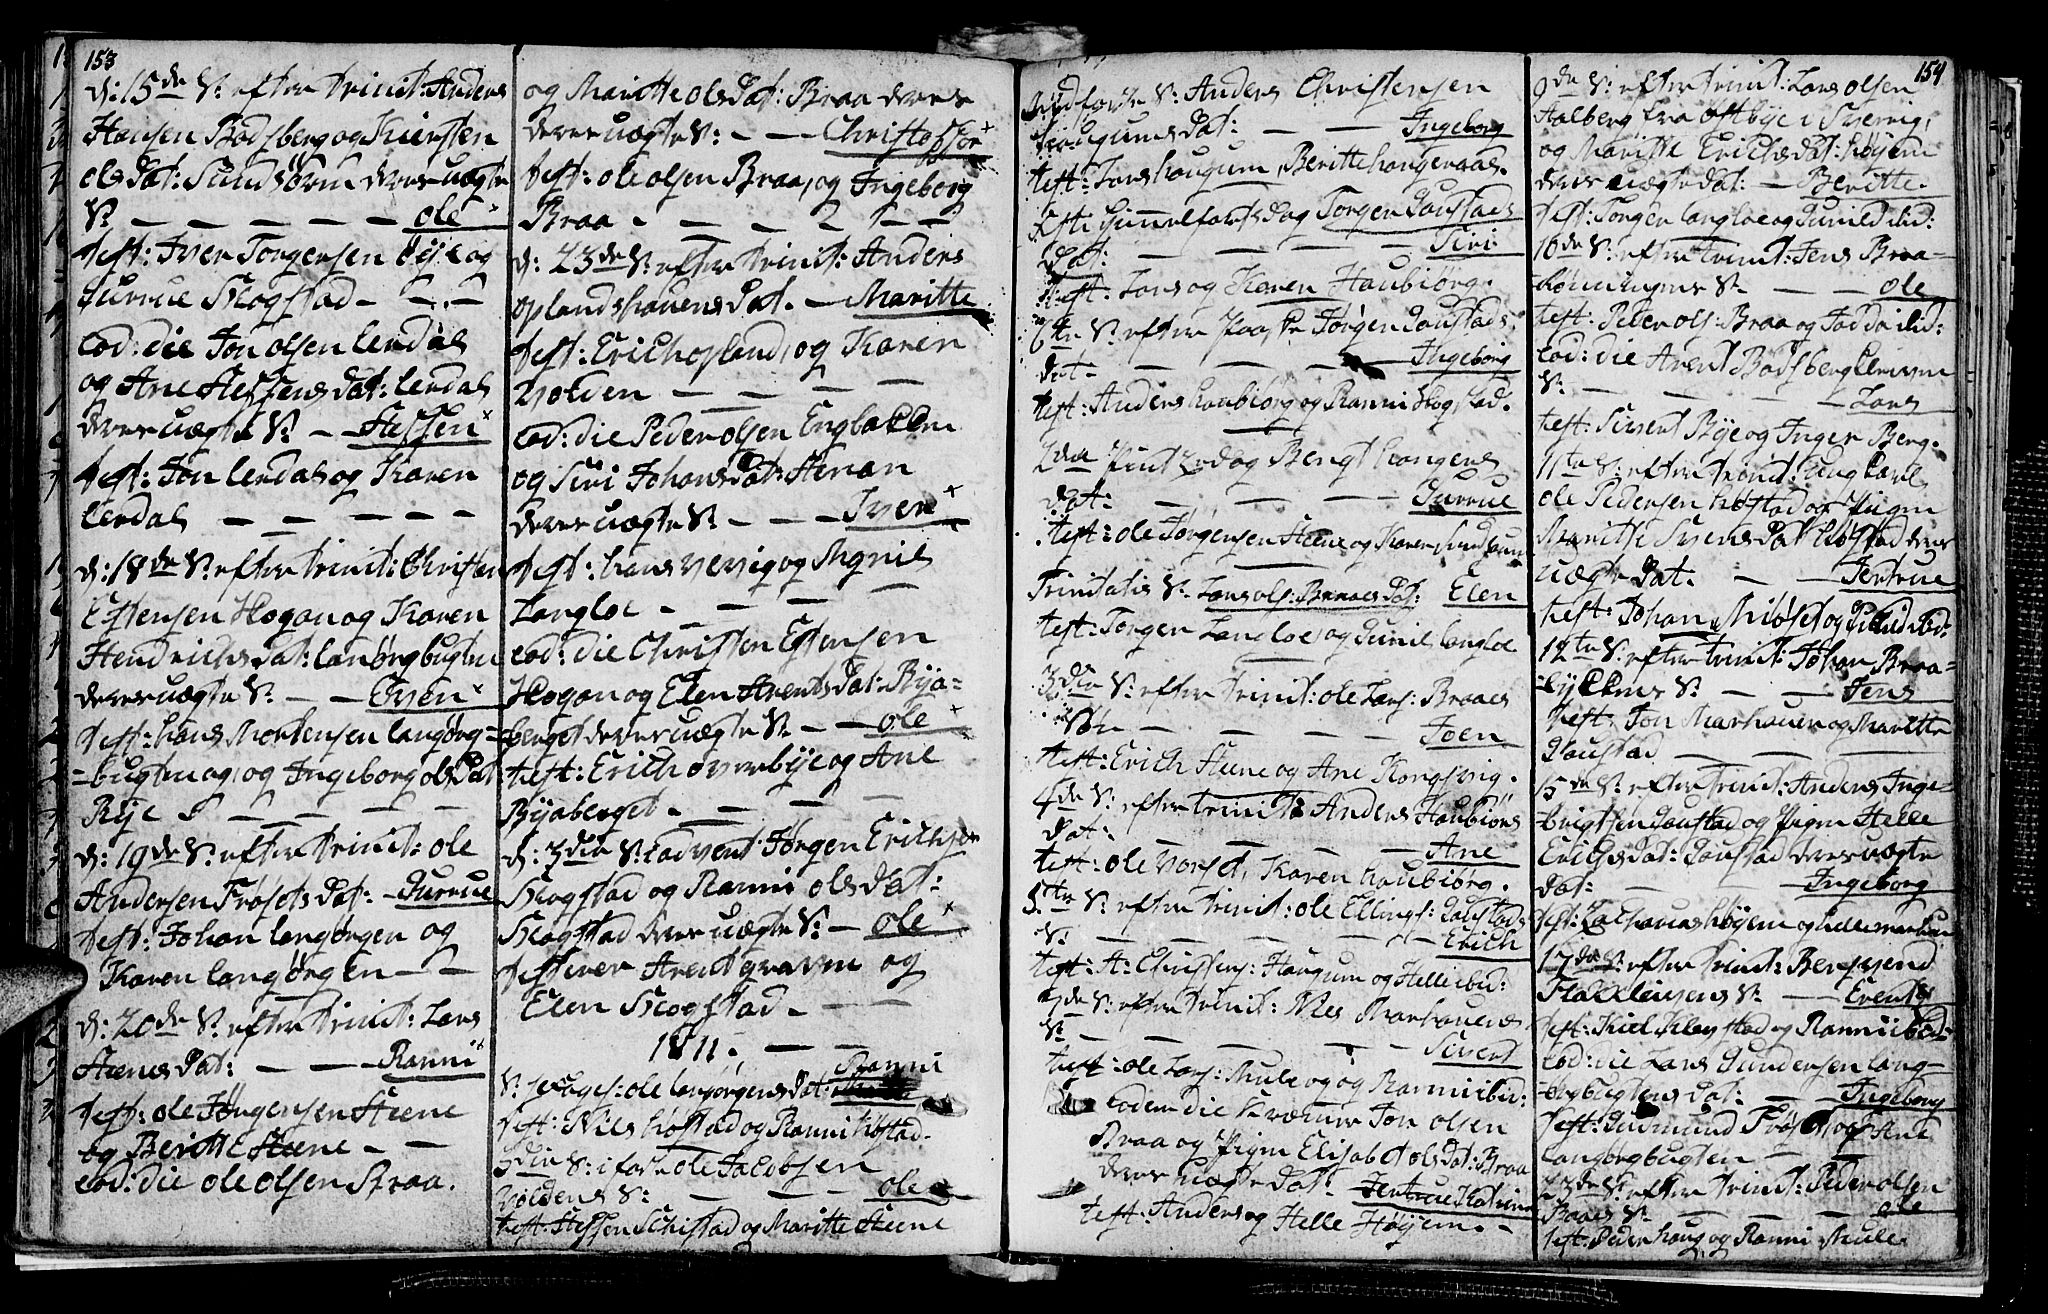 153
d: 15de S: efter Trinit: Anders
Hansen Bodsberg og Kiersten
olsdat: Sundsørn deres uægte
S: — — — — ole
test: Iver Jorgensen bye og
Gurrue Skogstad — — —
eod: die Jon olsen lerdal
og Ane Steffensdat: lerdal
deres uægte S: — Steffen
test: Jon lerdal og Karen
lerdal — — — — —
d: 18de S: efter Trinit: Christen
Estensen Hogan og Karen
Hendrichsdat: langørgbugten
deres uægte S: — — Even
test: hans Mortensen langørg=
=bugten og Ingeborg olsdat
Rye — — — —
d: 19de S: efter Trinit: ole
Andersen Frøsets dat: — Gurrue
test: Johan langørgen og
Karen langørgen — —
d: 20de S: efter Trinit: Lars
Steenes dat: — — Ranni
test: ole Jørgensen Steene
og Beritte Steene — —
eod: die ole olsen Braa.
og Maritte olsdat: Braa deres
deres uægte S: — — Christoffer
test: ole olsen Braa, og Ingeborg
Braa — — — — —
d: 23de S: efter Trinit: Anders
oplandshauens dat. — Maritte
test: Erich opland, og Karen
Volden — — — —
eod: die Peder olsen Engbakken
og Siri Johansdat: Stenan
deres uægte S: — — Iver
test: hans vevig og Agnis
Langloe — — — —
eod: die Christen Estensen
Hogan og Elen Arentsdat: Bya=
berget deres uægte S: — — ole
test: Erich overbye og Ane
Byaberget — — — —
d: 3die S: i advent Jørgen Erichsen
Skogstad og Ranni olsdat:
Skogstad deres uægte S: — ole
test: iver Arentsgraven og
Elen Skogstad — — —
1811. — —
S: ole langørgens dat: Ranni
test: Niels høstad og Ranni høstad.
3die S: i faste ole Jacobsen
Voldens S: — — — ole
test: Steffen Schistad og Maritte Steene
S: Anders Christensen
haugums dat: — — Ingeborg
test: Lars haugum, Beritte haugeraaes.
Jørgen Gaustads
dat: — — — — Siri
test: Lars og Karen Haubiørg.
6te S: efter Paaske Jørgen Gaustads
dat — — — — Ingeborg
test: Anders haubiørg og Ranni Skogstad.
2den Pintzedag Bengt haugens
dat: — — — — Gurrue
test: ole Jørgensen Steene og Karen
Trinitatis S: Lars ols: Braaes dat: Elen
test: Jørgen Langloe og Gunil langloe
3die S: efter Trinit: ole Lars: Braaes
Søn — — — — Joen
test: Erich Steene og Ane Kongsvig.
4de S: efter Trinit: Anders Haubiørs
dat: — — — — Ane
test: ole Vorset, Karen haubiørg.
5te S: efter Trinit: ole Ellings: Gaustads
S: — — — — Erich
test: A: Christens: Haugum og Helle ibid:
7de S: efter Trinit: Nies Marhaues
S: — — — — Sivert
test: ole Lars: Mule og Ranni ibid:
eodem die Jon olsen
Braa og Pigen Elisabet olsdat: Braa
deres uægte dat: Jertrue Katrina
test: Anders og Helle Høyem.
154
9de S: efter Trinit: Lars olsen
Aalberg fra oftbye i Sverrig,
og Maritte Erichsdat: høyem
deres uægte dat: — Beritte.
test: Jorgen langloe og Gunild ibid:
10de S: efter Trinit: Jens Braa=
S: — — ole
test: Peder ols: Braa og ibid:
eod: die Arent Bodsberg
S: — — — — Lars
test: Sivert Bye og Inger Berg.
11te S: efter Trinit: ung karl
ole Pedersen høstad og Pigen
Maritte Svensdat høstad deres
uægte dat. — — Jertrue
test: Johan Miøset og ibid:
12te S: efter Trinit: Johan Braa=
S: — — Jens
test: Jon Marhauer og Maritte
Gaustad — — — —
15de S: efter Trinit: Anders Inge=
brigtsen Gaustad og Pigen Helle
Erichsdat: Gaustad deres uægte
dat: — — — Ingeborg
test: høyem og helle marhau
17de S: efter Trinit: Bersvend
S: — — Even
test: Kiel og Ranni ibid:
eod: die Lars Gundersen lang=
=ørgbugtens dat: — Ingeborg
test: Gudmund Frøset og Ane
langørgbugten — — —
23de S: efter Trinit: Peder olsen
Braaes S: — — — ole
test: Peder haug og Ranni Mule